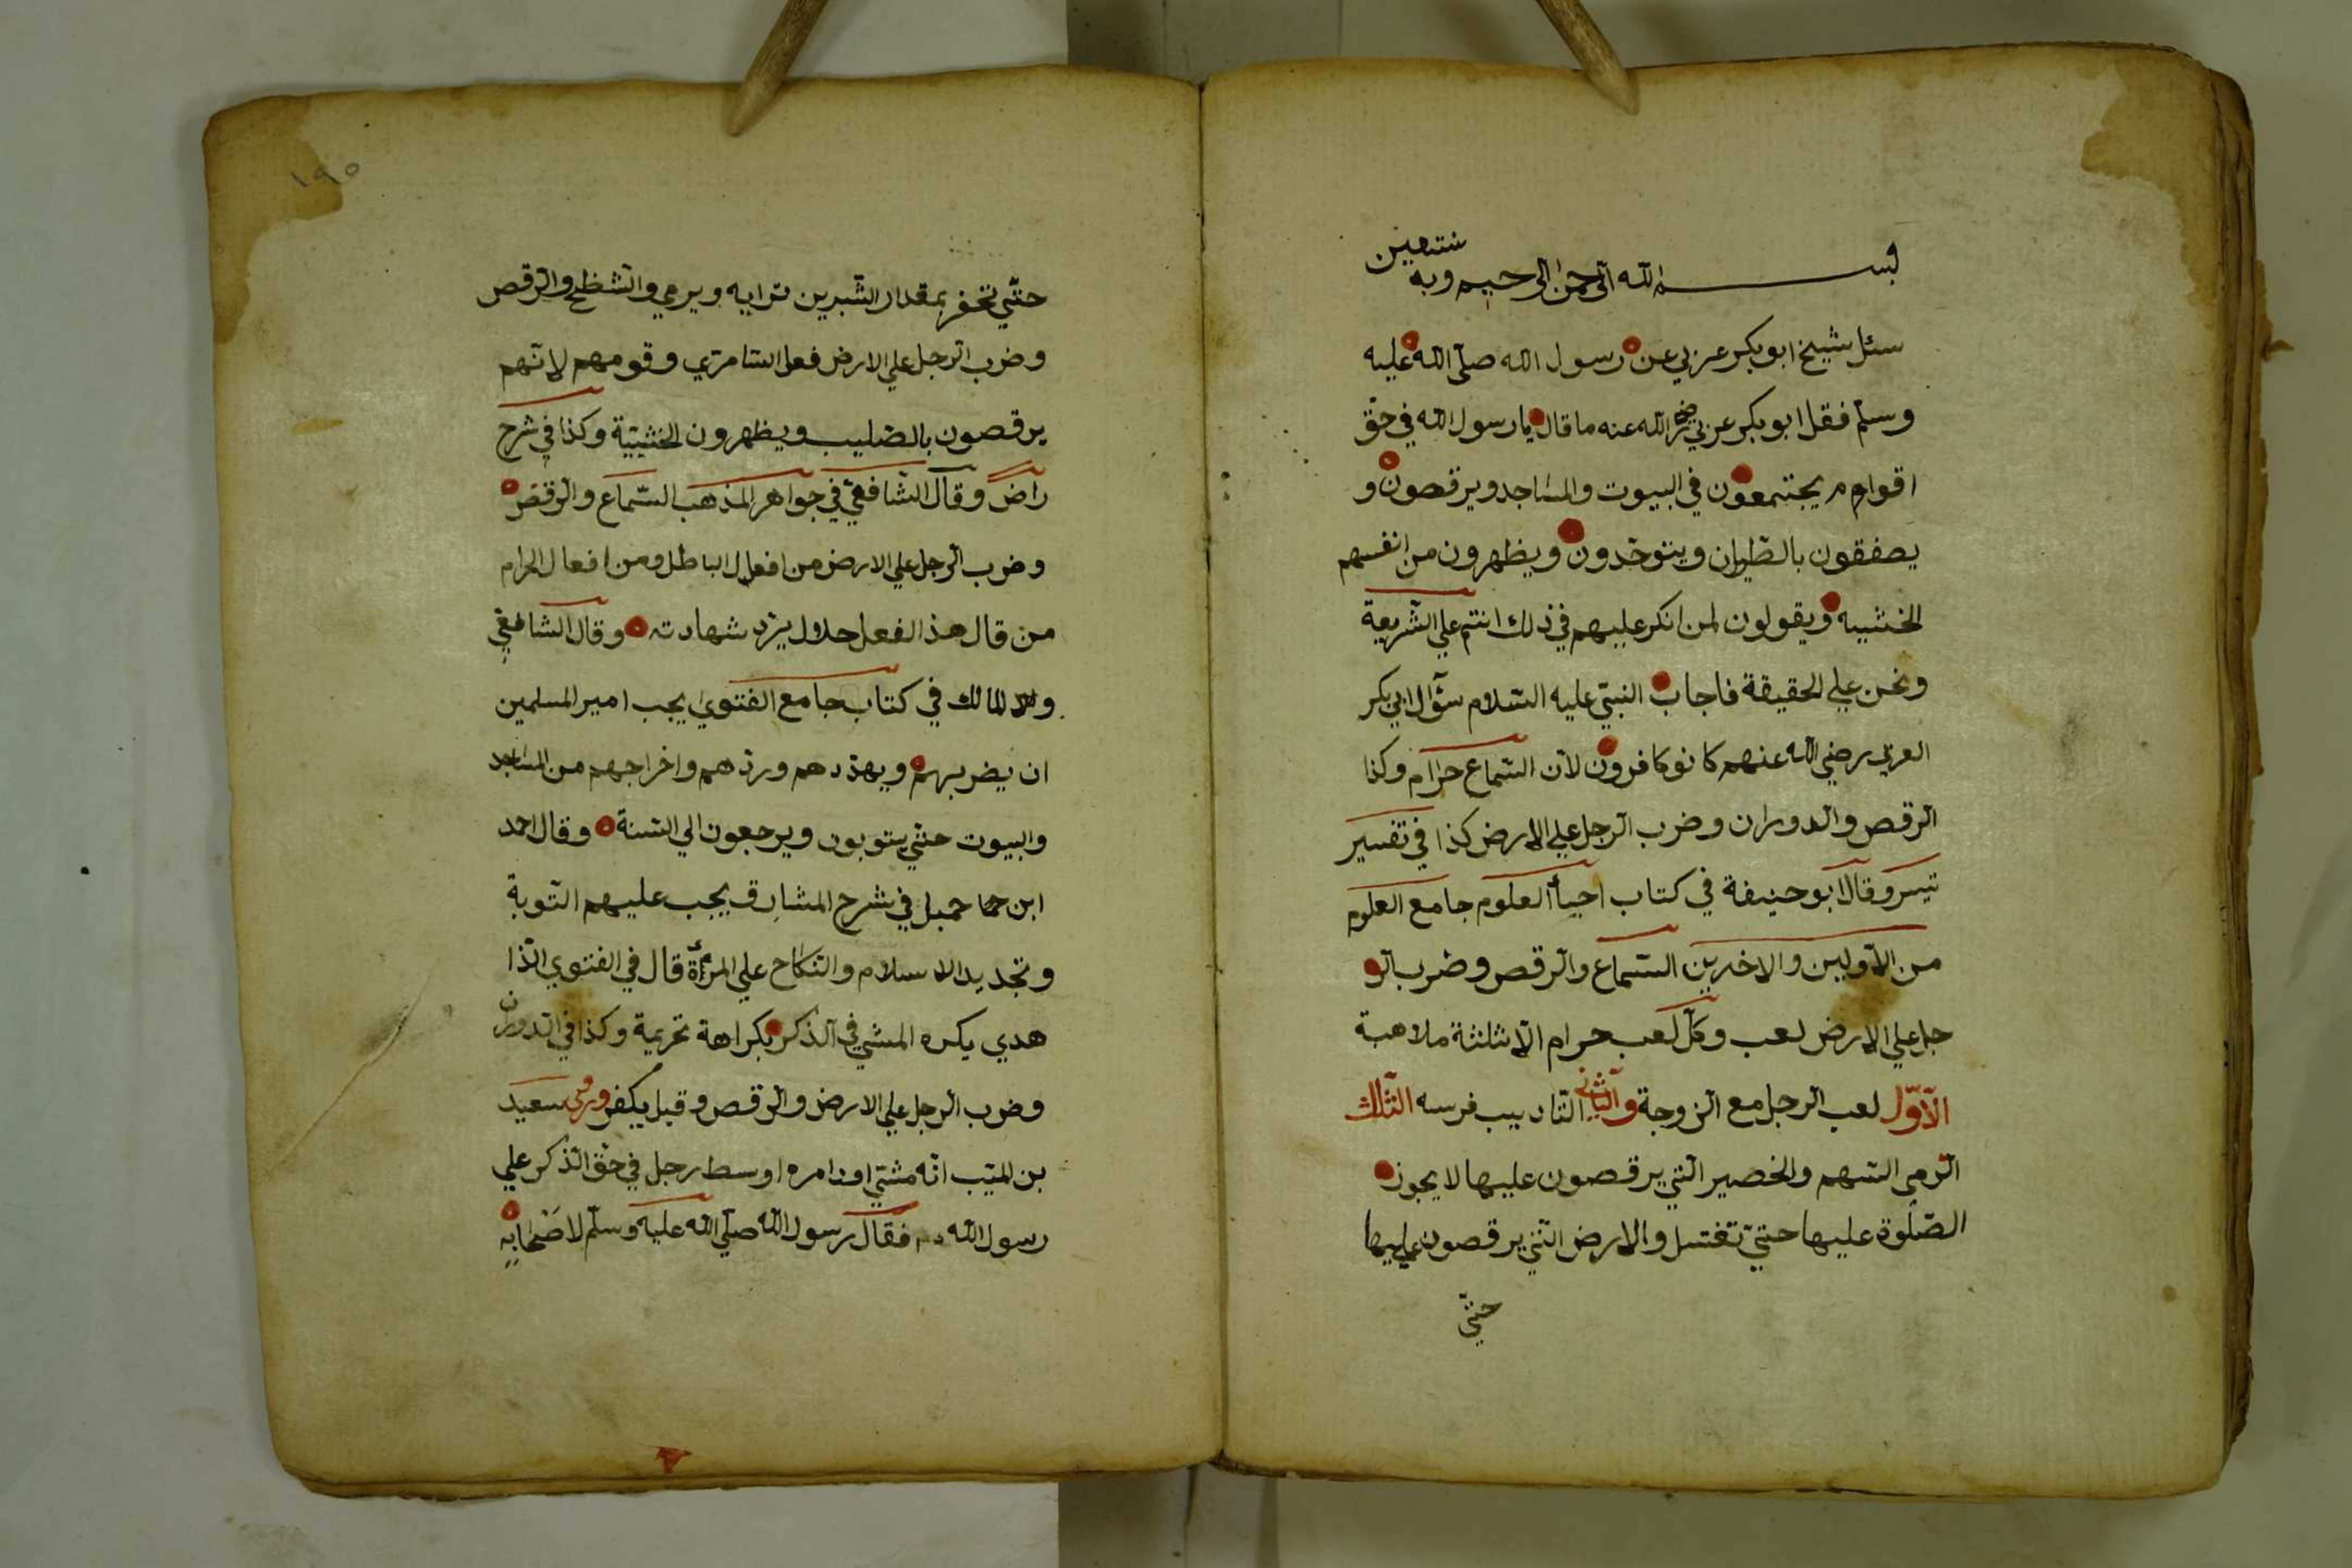 بســـــم الله الرحمن الرحيم وبه نستعين
سئل شيخ ابو بكر عربي عن رسول الله صلّي الله عليه
وسلّم فقل ابو بكر عربي رضي الله عنه ما قال يا رسول الله في حقّ
اقوام يجتمعون في البيوت والمساجد ويرقصون و
يصفقون بالطّيران ويتوحّدون ويظهرون من انفسهم
الخشيه ويقولون لمن انكر عليهم في ذلك انتم علي الشّريعة
ونحن علي الحقيقة فاجاب النبيّ عليه السّلام سؤال ابي بكر
العربي رضي الله عنهم كانو كافرون لانّ السّماع حرام وكذا
الرقص والدوران وضرب الرّجل علي الارض كذا في تفسير
تيسر وقال ابو حنيفة في كتاب احيأ العلوم جامع العلوم
من الاوّلين والاخرين السّماع والرقص وضرب الر
جل علي الارض لعب وكلّ لعب حرام الّا ثلثة ملاهبة
الاوّل لعب الرجل مع الزوجة والثاني التاديب فرسه الثالث
الرّمي السّهم والخصير الّتي يرقصون عليها لا يجوز
الصّلوة عليها حتيّ تغتسل والارض الّتي يرقصون عليها
حتّي
١٩٥
حتّي تحفر بمقدار الشّبرين ترابه ويرمي والشطح والرّقص
وضرب الرّجل علي الارض فعل السّامرّي وقومهم لانّهم
يرقصون بالصّليب ويظهرون الخشيّة وكذا في شرح
راض وقال الشّافعيّ في جواهر المذهب السّماع والرّقص
وضرب الرّجل علي الارض من افعال الباطل ومن افعال الحرام
من قال هذ الفعل حلال يردّ شهادته وقال الشّافعّي
والمالك في كتاب جامع الفتوي يجب امير المسلمين
ان يضربهم ويهدّدهم وردّهم واخراجهم من المساجد
والبيوت حتّي يتوبون ويرجعون الي السّنة وقال احمد
ابن حمبل في شرح المشارق يجب عليهم التّوبة
وتجديد الاسلام والنّكاح علي المرأة قال في الفتوي الذّا
هدي يكره المشي في الذّكر بكراهة تحريمة وكذا في الدوران
وضرب الرجل علي الارض والرّقص وقيل يكفر وروي سعيد
بن المسيّب انّه مشّي اوزامره اوسط رجل في حقّ الذّكر علي
رسول الله فقال رسول الله صلّي الله عليه وسلّم لاصحابه